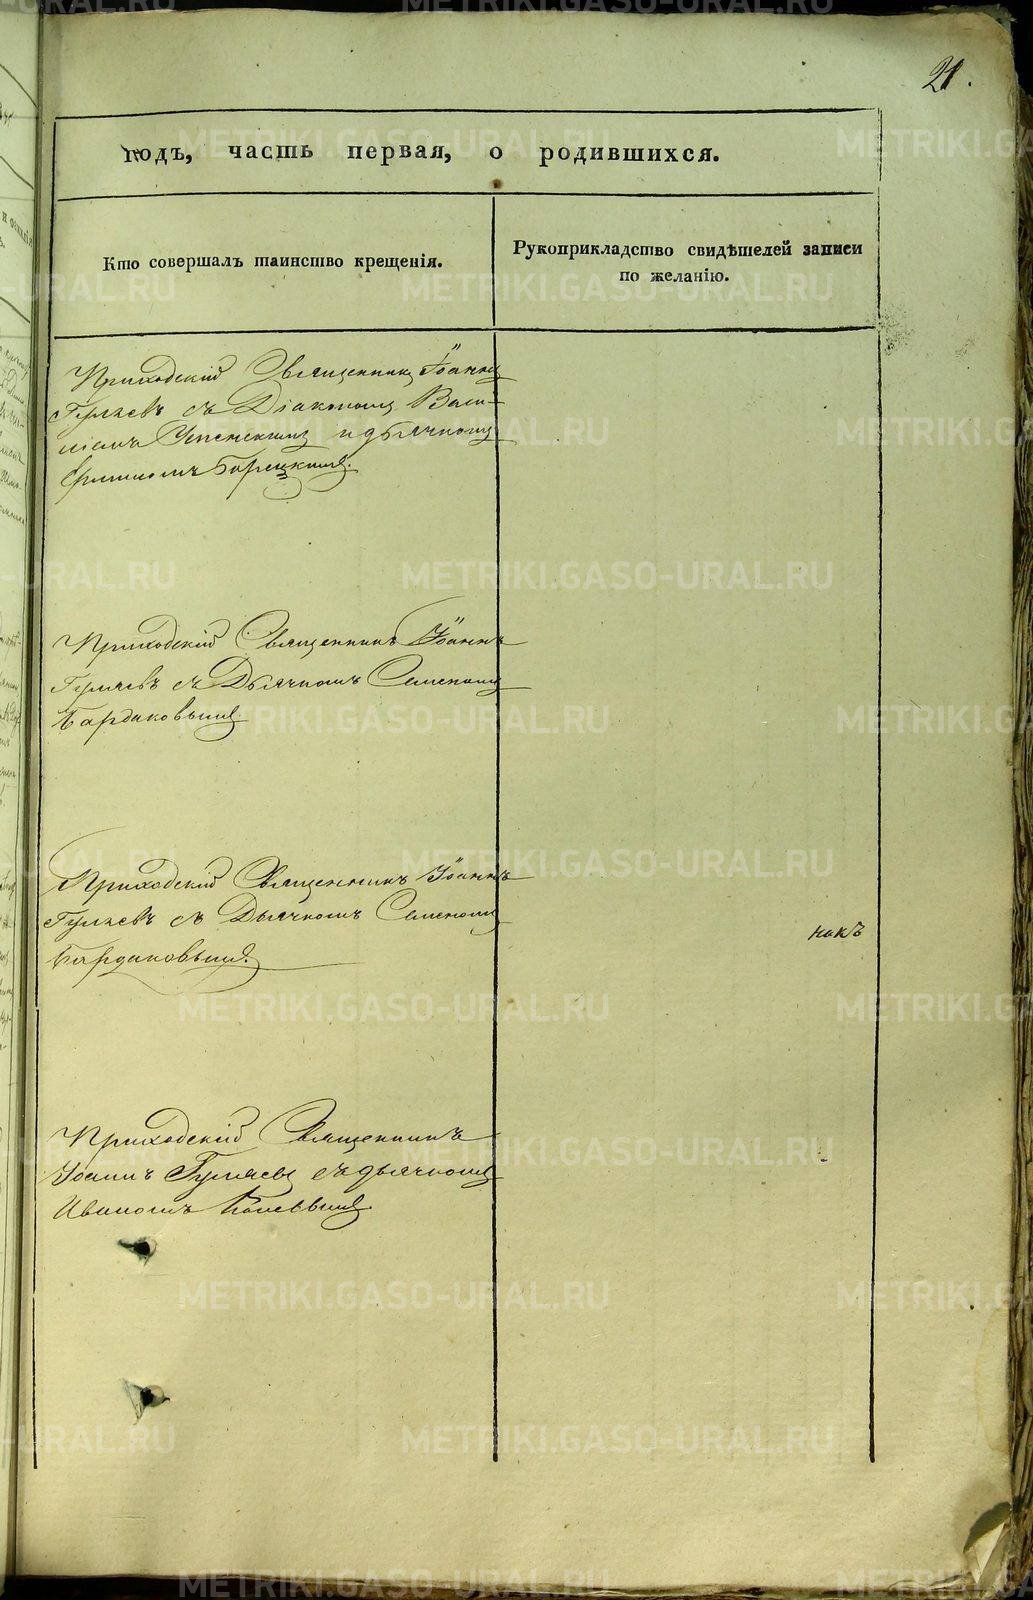 21.
годъ, часть первая, о родившихся.
Кто совершалъ таинство крещенія.
Рукоприкладство свидѣтелей записи
по желанію.
Приходскій Священникъ Іоаннъ
Гуляевъ съ Діакономъ Васи-
ліемъ Успенскимъ и дьячкомъ
Приходскій Священникъ Іоаннъ
Гуляевъ съ Дьячкомъ Семеномъ
Бардаковымъ.
Приходскій Священникъ Іоаннъ
Гуляевъ съ Дьячкомъ Семеномъ
Бардаковымъ.
накъ
Приходскій Священникъ
Іоаннъ Гуляевъ съ дьячкомъ
Иваномъ
METRIKI.GASO-URAL.RU